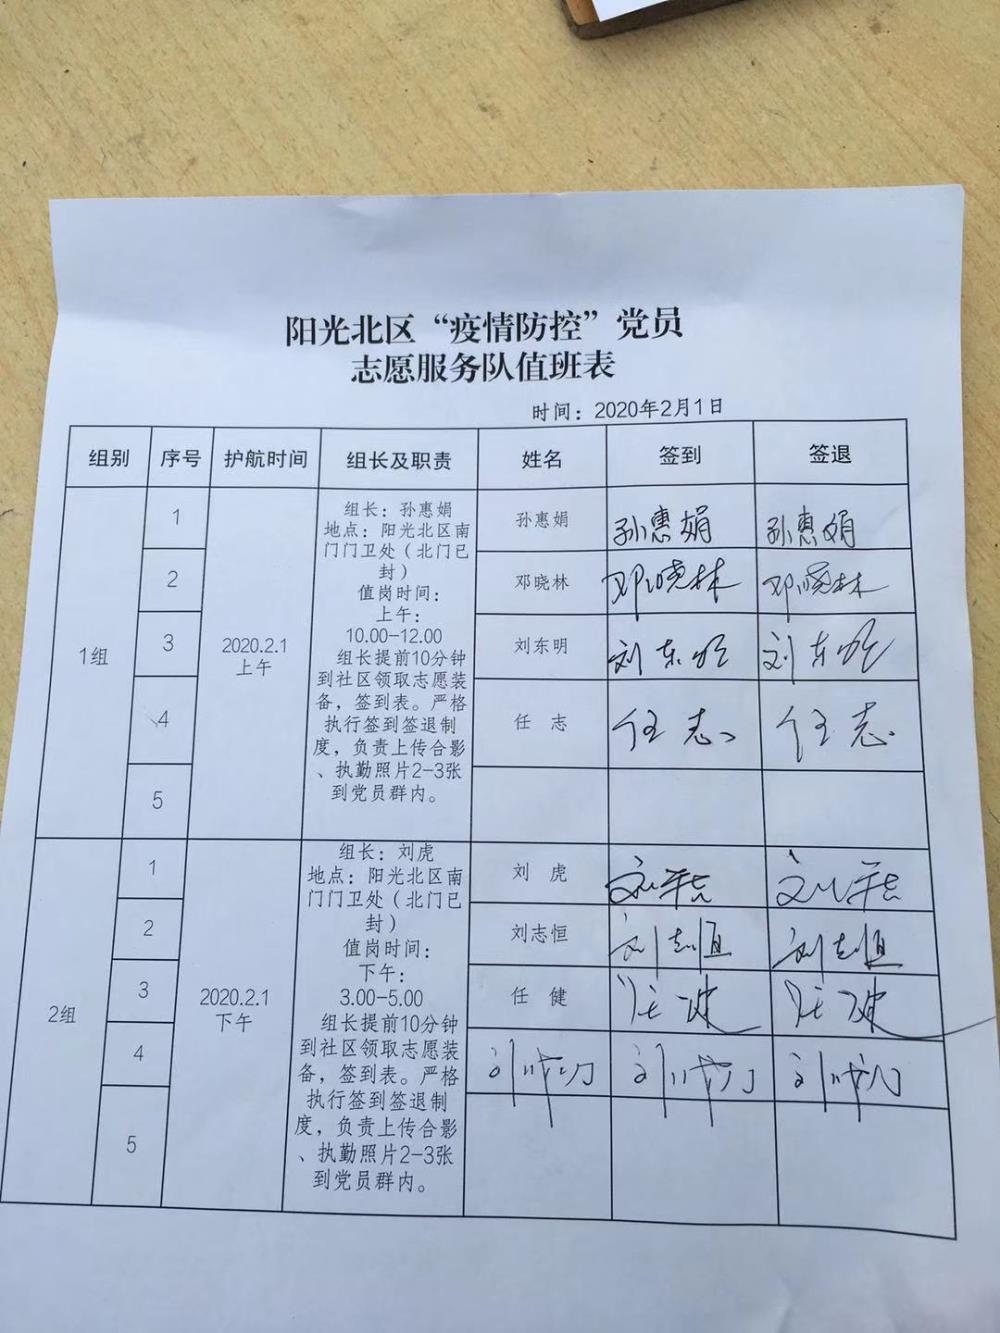 阳光北区“疫情防控”党员
志愿服务队值班表
时间：2020年2月1日
组别 序号 护航时间 组长及职责 姓名 签到 签退
1组
2020.2.1
上午
组长：孙惠娟
地点：阳光北区南
门门卫处（北门已
封）
值岗时间：
上午：
10.00-12.00
组长提前10分钟
到社区领取志愿装
备，签到表。严格
执行签到签退制
度，负责上传合影
、执勤照片2-3张
到党员群内。
1 孙惠娟 孙惠娟 孙惠娟
2 邓晓林 邓晓林 邓晓林
3 刘东明 刘东明 刘东明
4 任 志 任志 任志
5
2组
2020.2.1
下午
组长：刘虎
地点：阳光北区南
门门卫处（北门已
封）
值岗时间：
下午：
3.00-5.00
组长提前10分钟
到社区领取志愿装
备，签到表。严格
执行签到签退制
度，负责上传合影
、执勤照片2-3张
到党员群内。
1 刘 虎
2 刘志恒 刘志恒 刘志恒
3 任 健 任健 任健
4
5